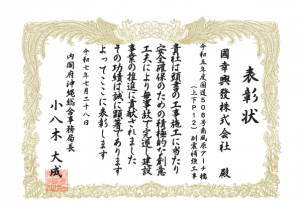 表彰状
國幸興發株式会社 殿
令和五年度国道506号南風原アーチ橋
(上下P12)耐震補強工事
貴社は頭書の工事施工に当たり
安全確保のための積極的な創意
工夫により無事故で完遂し建設
事業の推進に貢献されました
その功績は誠に顕著であります
よってここに表彰します
令和七年七月二十八日
内閣府沖縄総合事務局長
小八木 大成